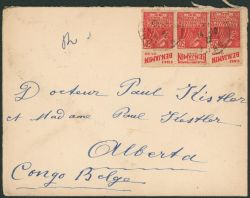 BENJAMIN BENJAMIN BENJAMIN
Docteur Paul Kistler
et Madame Paul Kestler
Alberta
Congo Belge